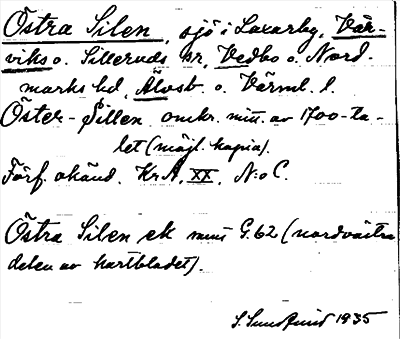 Östra Silen, sjö i Laxarby, Vår-
viks o. Silleruds sn, Vedbo o. Nord-
marks hd, Älvsb. o. Värml. l.
Öster-Sillen omkr. mitt. av 1700-ta-
let (möjl. kopia).
Förf. okänd. Kr.A. XX, N:o C.
Östra Silen ek mus G.62 (nordvästra
delen av kartbladet).
S. Sundqvist 1935